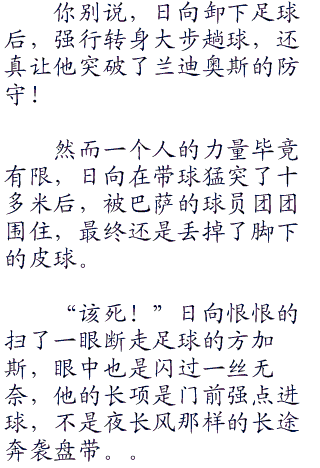 你别说，日向卸下足球
后，强行转身大步趟球，还
真让他突破了兰迪奥斯的防
守！
然而一个人的力量毕竟
有限，日向在带球猛突了十
多米后，被巴萨的球员团团
围住，最终还是丢掉了脚下
的皮球。
“该死！”日向恨恨的
扫了一眼断走足球的方加
斯，眼中也是闪过一丝无
奈，他的长项是门前强点进
球，不是夜长风那样的长途
奔袭盘带。。